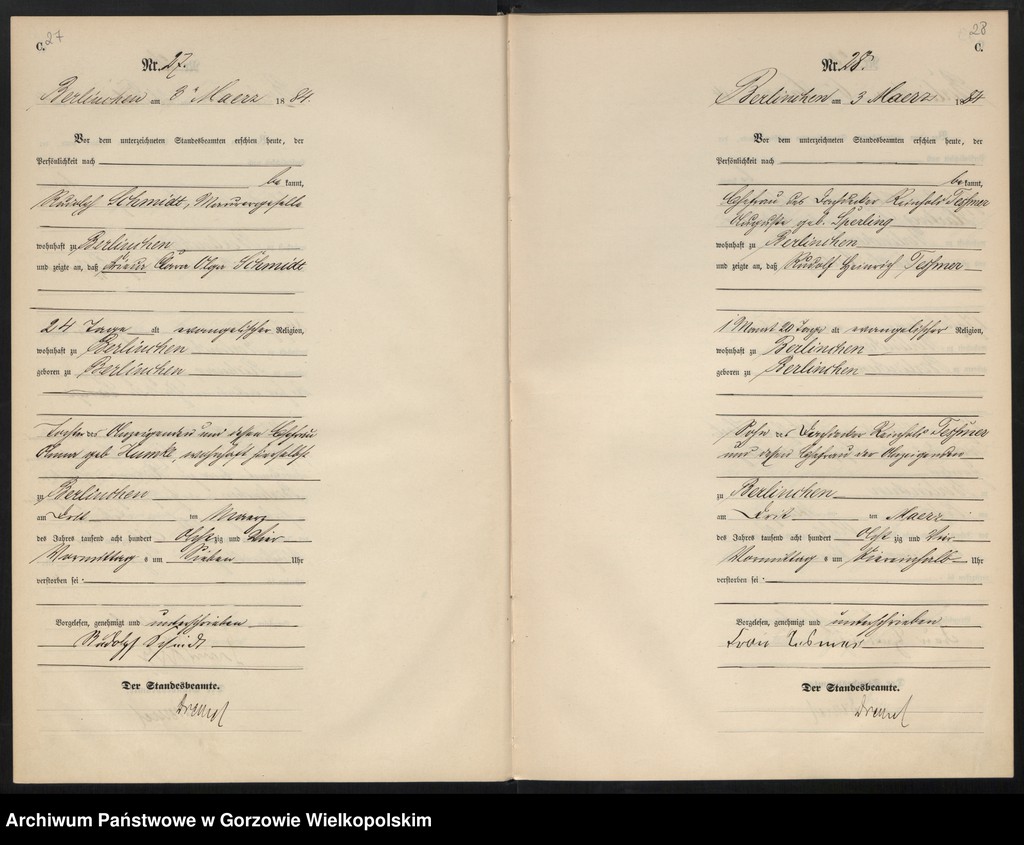 27
C.
Nr. 27.
Berlinchen am 3 Maerz 1884.
Vor dem unterzeichneten Standesbeamten erschien heute, der
Persönlichkeit nach
be kannt,
Rudolf Schmidt, Maurergeselle
wohnhaft zu Berlinchen
und zeigte an, daß Clara Olga Schmidt
24 Tage alt evangelischer Religion,
wohnhaft zu Berlinchen
geboren zu Berlinchen
Tochter des Anzeigenden und dessen Ehefrau
Anna geb Humke, wohnhaft
zu Berlinchen
am ten Maerz
des Jahres tausend acht hundert Acht zig und Vier
Vormittag s um Sieben Uhr
verstorben sei
Vorgelesen, genehmigt und unterschrieben
Rudolf
Der Standesbeamte.
28
C.
Nr. 28.
Berlinchen am 3 Maerz 1884
Vor dem unterzeichneten Standesbeamten erschien heute, der
Persönlichkeit nach
be kannt,
Ehefrau des Dachdecker Reinhold Teßmer
Auguste geb. Sperling
wohnhaft zu Berlinchen
und zeigte an, daß Rudolf Heinrich Teßmer
1 Monat 20 Tage alt evangelischer Religion,
wohnhaft zu Berlinchen
geboren zu Berlinchen
Sohn des Dachdecker Reinhold Teßmer
und dessen Ehefrau der Anzeigenden
zu Berlinchen
am ten Maerz
des Jahres tausend acht hundert Acht zig und Vier
Vormittag s um Viereinhalb Uhr
verstorben sei
Vorgelesen, genehmigt und unterschrieben
Frau
Der Standesbeamte.
Archiwum Państwowe w Gorzowie Wielkopolskim